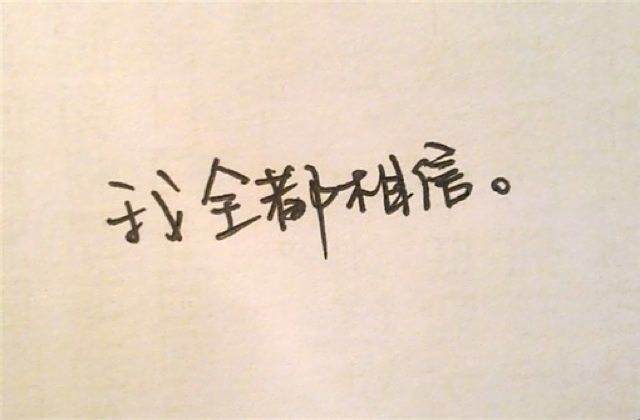 我全都相信。